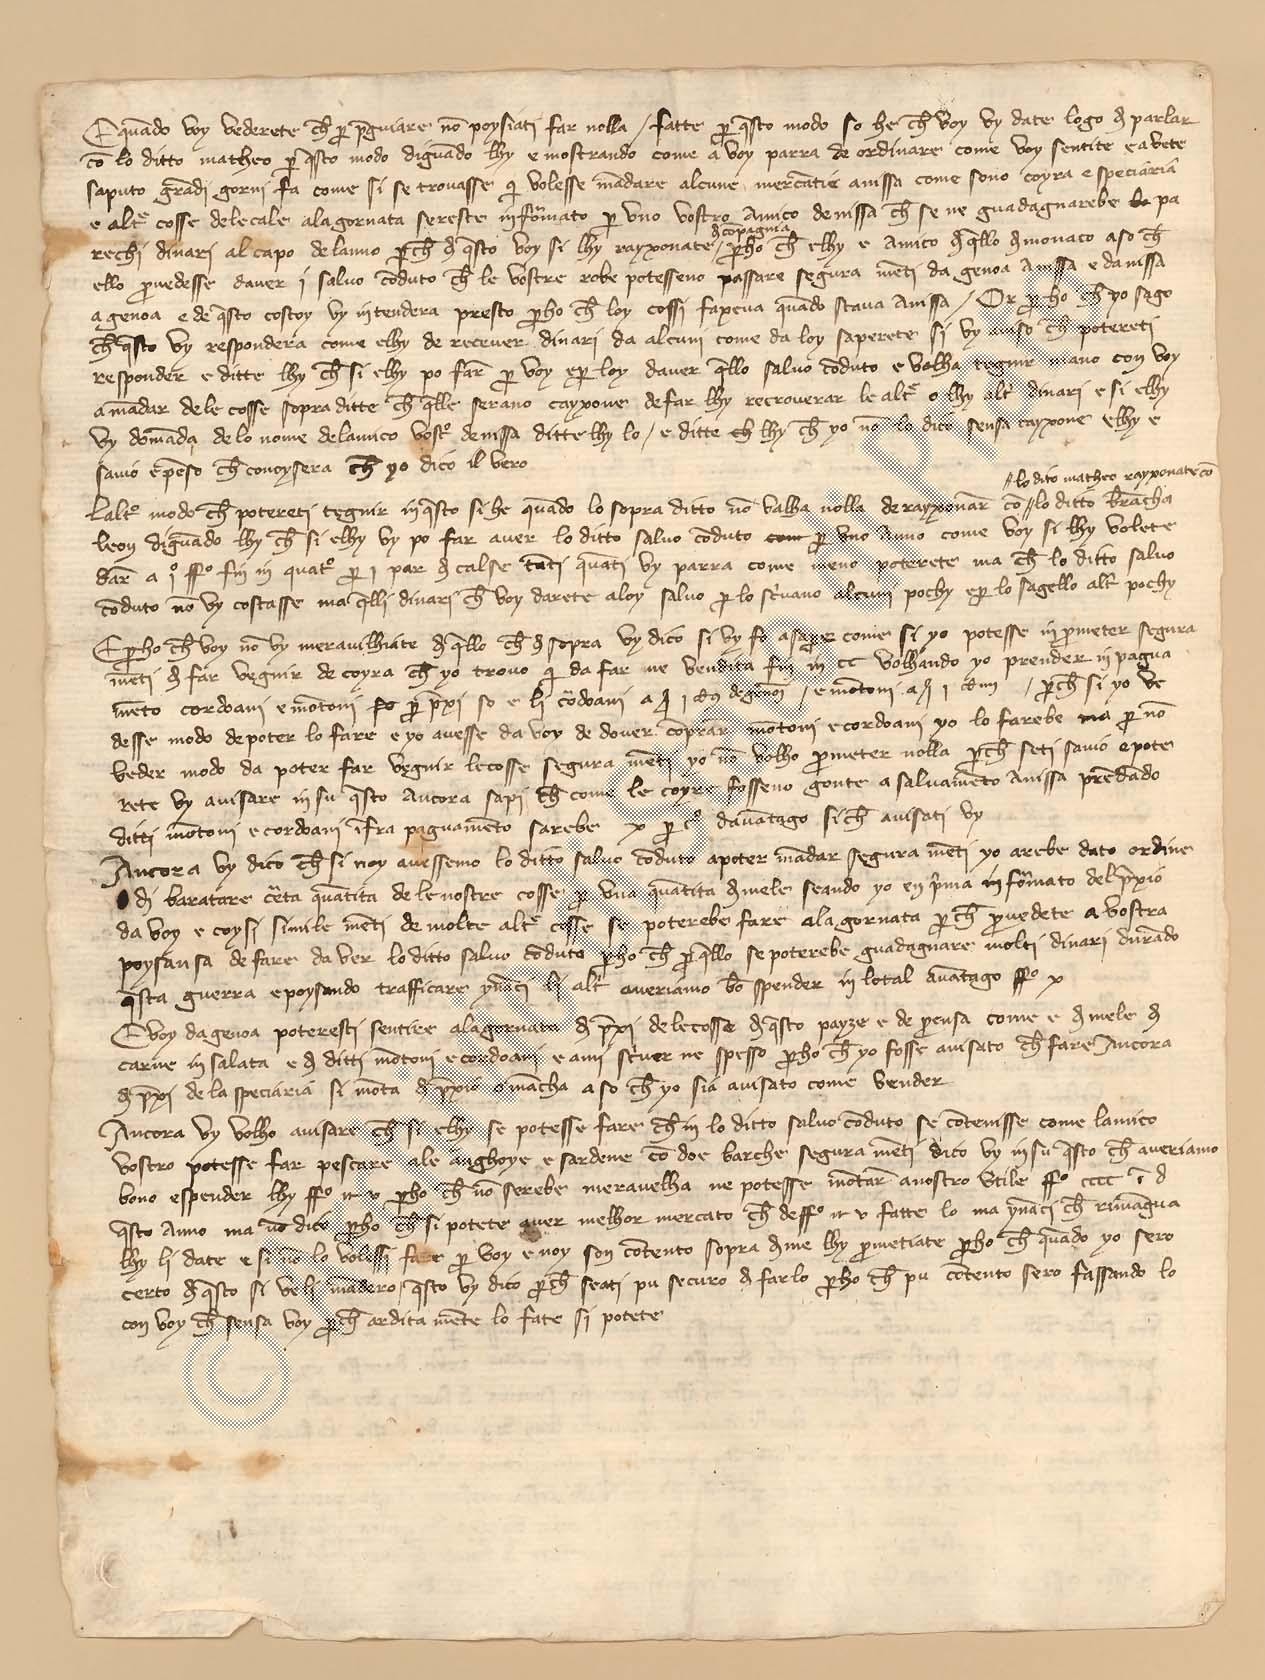 E quādo voy vederete ch̄ ꝑ p̄guiare nō poysiati far nolla / fatte ꝑ q̄sto modo so he ch̄ voy vy date logo d̄ parlar
cō lo ditto matheo ꝑ q̄sto modo diguādo lhy e mostrando come a voy parra de ordinare come voy sentite e avete
saputo grādi gorni fa come si se trouasse q̄ volesse mādare alcune mercātie anissa come sono coyra e speciaria
e altr̄ cosse de le cale ala gornata sereste īformato ꝑ vno vostro Amico de nissa ch̄ se ne guadagnarebe pa
rechi dinari al capo de lanno ꝑch̄ d̄ q̄sto voy si lhy rayxonate / ꝑho ch̄ elhy e Amico d̄ q̄llo d̄ monaco aso ch̄
d̄ cōpagnia
ello ꝓuedesse dauer j saluo cōduto ch̄ le vostre robe potesseno passare segura mēti da genoa Anissa e da nissa
a genoa e de q̄sto costoy vy intendera presto ꝑho ch̄ loy cossi faxeua quādo staua Anissa / Or ꝑho ch̄ yo sago
ch̄ q̄sto vy respondera come elhy de receuer dinari da alcuni come da loy saperete si vy auiso ch̄ potereti
responder e ditte lhy ch̄ si elhy po far ꝑ voy e ꝑ loy dauer q̄llo saluo cōduto e volha tegnir mano con voy
a mādar de le cosse sopra ditte ch̄ q̄lle serano cayxone de far lhy recouerar le altr̄ o lhy altr̄ dinari e si elhy
vy domāda de lo nome de lamico vostr̄ de nissa ditte lhy lo / e ditte lhy ch̄ yo nō lo dico sensa cayxone elhy e
sauio e pēso ch̄ conoysera ch̄ yo dico il vero
// lo dito matheo rayxonate cō
Laltr̄ modo ch̄ potereti tegnir in q̄sto si he quādo lo sopra ditto nō valha nolla de rayxonar cō // lo ditto brācha
leon diguādo lhy ch̄ si elhy vy po far auer lo ditto saluo cōduto ꝑ vno Anno come voy si lhy volete
dar a j ffº fin in quatr̄ ꝑ j par d̄ calse tāti quāti vy parra come meno poterete ma ch̄ lo ditto saluo
cōduto nō vy costasse ma q̄lli dinari ch̄ voy darete a loy saluo ꝑ lo scriuano alcuni pochy e ꝑ lo sagello altr̄ pochy
E ꝑho ch̄ voy nō vy merauilhiate d̄ q̄llo ch̄ d̄ sopra vy dico si vy fo a sager come si yo potesse inꝓmeter segura
mēti d̄ far vegnir de coyra ch̄ yo trouo q̄ da far me vendita fin in cc volhando yo prender in pagua
mēto cordoani e mōtoni ꝑ p̄xi so e li cōdoani a j / e mōtoni a j / ꝑch̄ si yo ve
desse modo de poter lo fare e yo auesse da voy de douer comprar mōtoni e cordoani yo lo farebe ma ꝑ nō
veder modo da poter far vegnir le cosse segura mēti yo nō volho ꝓmeter nolla ꝑch̄ seti sauio e pote
rete vy auisare in su q̄sto Ancora sapi ch̄ come le coyre fosseno gonte a saluamēto Anissa prēdādo
ditti mōtoni e cordoani īfra paguamēto sarebe x ꝑ cº dauātago si ch̄ auisati vy
Ancora vy dico ch̄ si noy auessemo lo ditto saluo cōduto a poter mādar segura mēti yo arebe dato ordine
di baratare c̄ta quātita de le nostre cosse ꝑ vna quātita d̄ mele seando yo en p̄ma īformato del p̄xio
da voy e coysi simile mēti de molte altr̄ cosse se poterebe fare ala gornata ꝑch̄ ꝓuedete a vostra
poysansa de fare da ver lo ditto saluo cōduto ꝑho ch̄ ꝑ q̄llo se poterebe guadagnare molti dinari durādo
q̄sta guerra e poysando trafficare ynāci li altr̄ aueriamo bō spender in lo tal auātago ffº x
E voy da genoa poteresti sentire ala gornata d̄ p̄xi de le cosse d̄ q̄sto payze e de ꝓensa come e d̄ mele d̄
carne in salata e d̄ ditti mōtoni e cordoani e a mi scriuer ne spesso ꝑho ch̄ yo fosse auisato ch̄ fare Ancora
d̄ p̄xi de la speciaria si mōta d̄ p̄xio o mācha a so ch̄ yo sia auisato come vender
Ancora vy volho auisare ch̄ si elhy se potesse fare ch̄ in lo ditto saluo cōduto se cōtenisse come lamico
vostro potesse far pescare ale anghoye e sardene cō doe barche segura mēti dico vy in su q̄sto ch̄ aueriamo
bono e spender lhy ffº ꝑho ch̄ nō serebe merauelha ne potesse mōtar a nostro vtile ffº cccc ī d
q̄sto Anno ma nō dico ꝑho ch̄ si potete auer melhor mercato ch̄ de ffº fatte lo ma ynāci ch̄ rimāgua
lhy li date e si nō lo volissi fare ꝑ voy e noy son cōtento sopra d̄ me lhy ꝓmetiate ꝑho ch̄ quādo yo sero
certo d̄ q̄sto si ve li mādero / q̄sto vy dico ꝑch̄ seati pu securo d̄ far lo ꝑho ch̄ pu cōtento sero fassando lo
con voy ch̄ sensa voy ꝑch̄ ardita mēte lo fate si potete